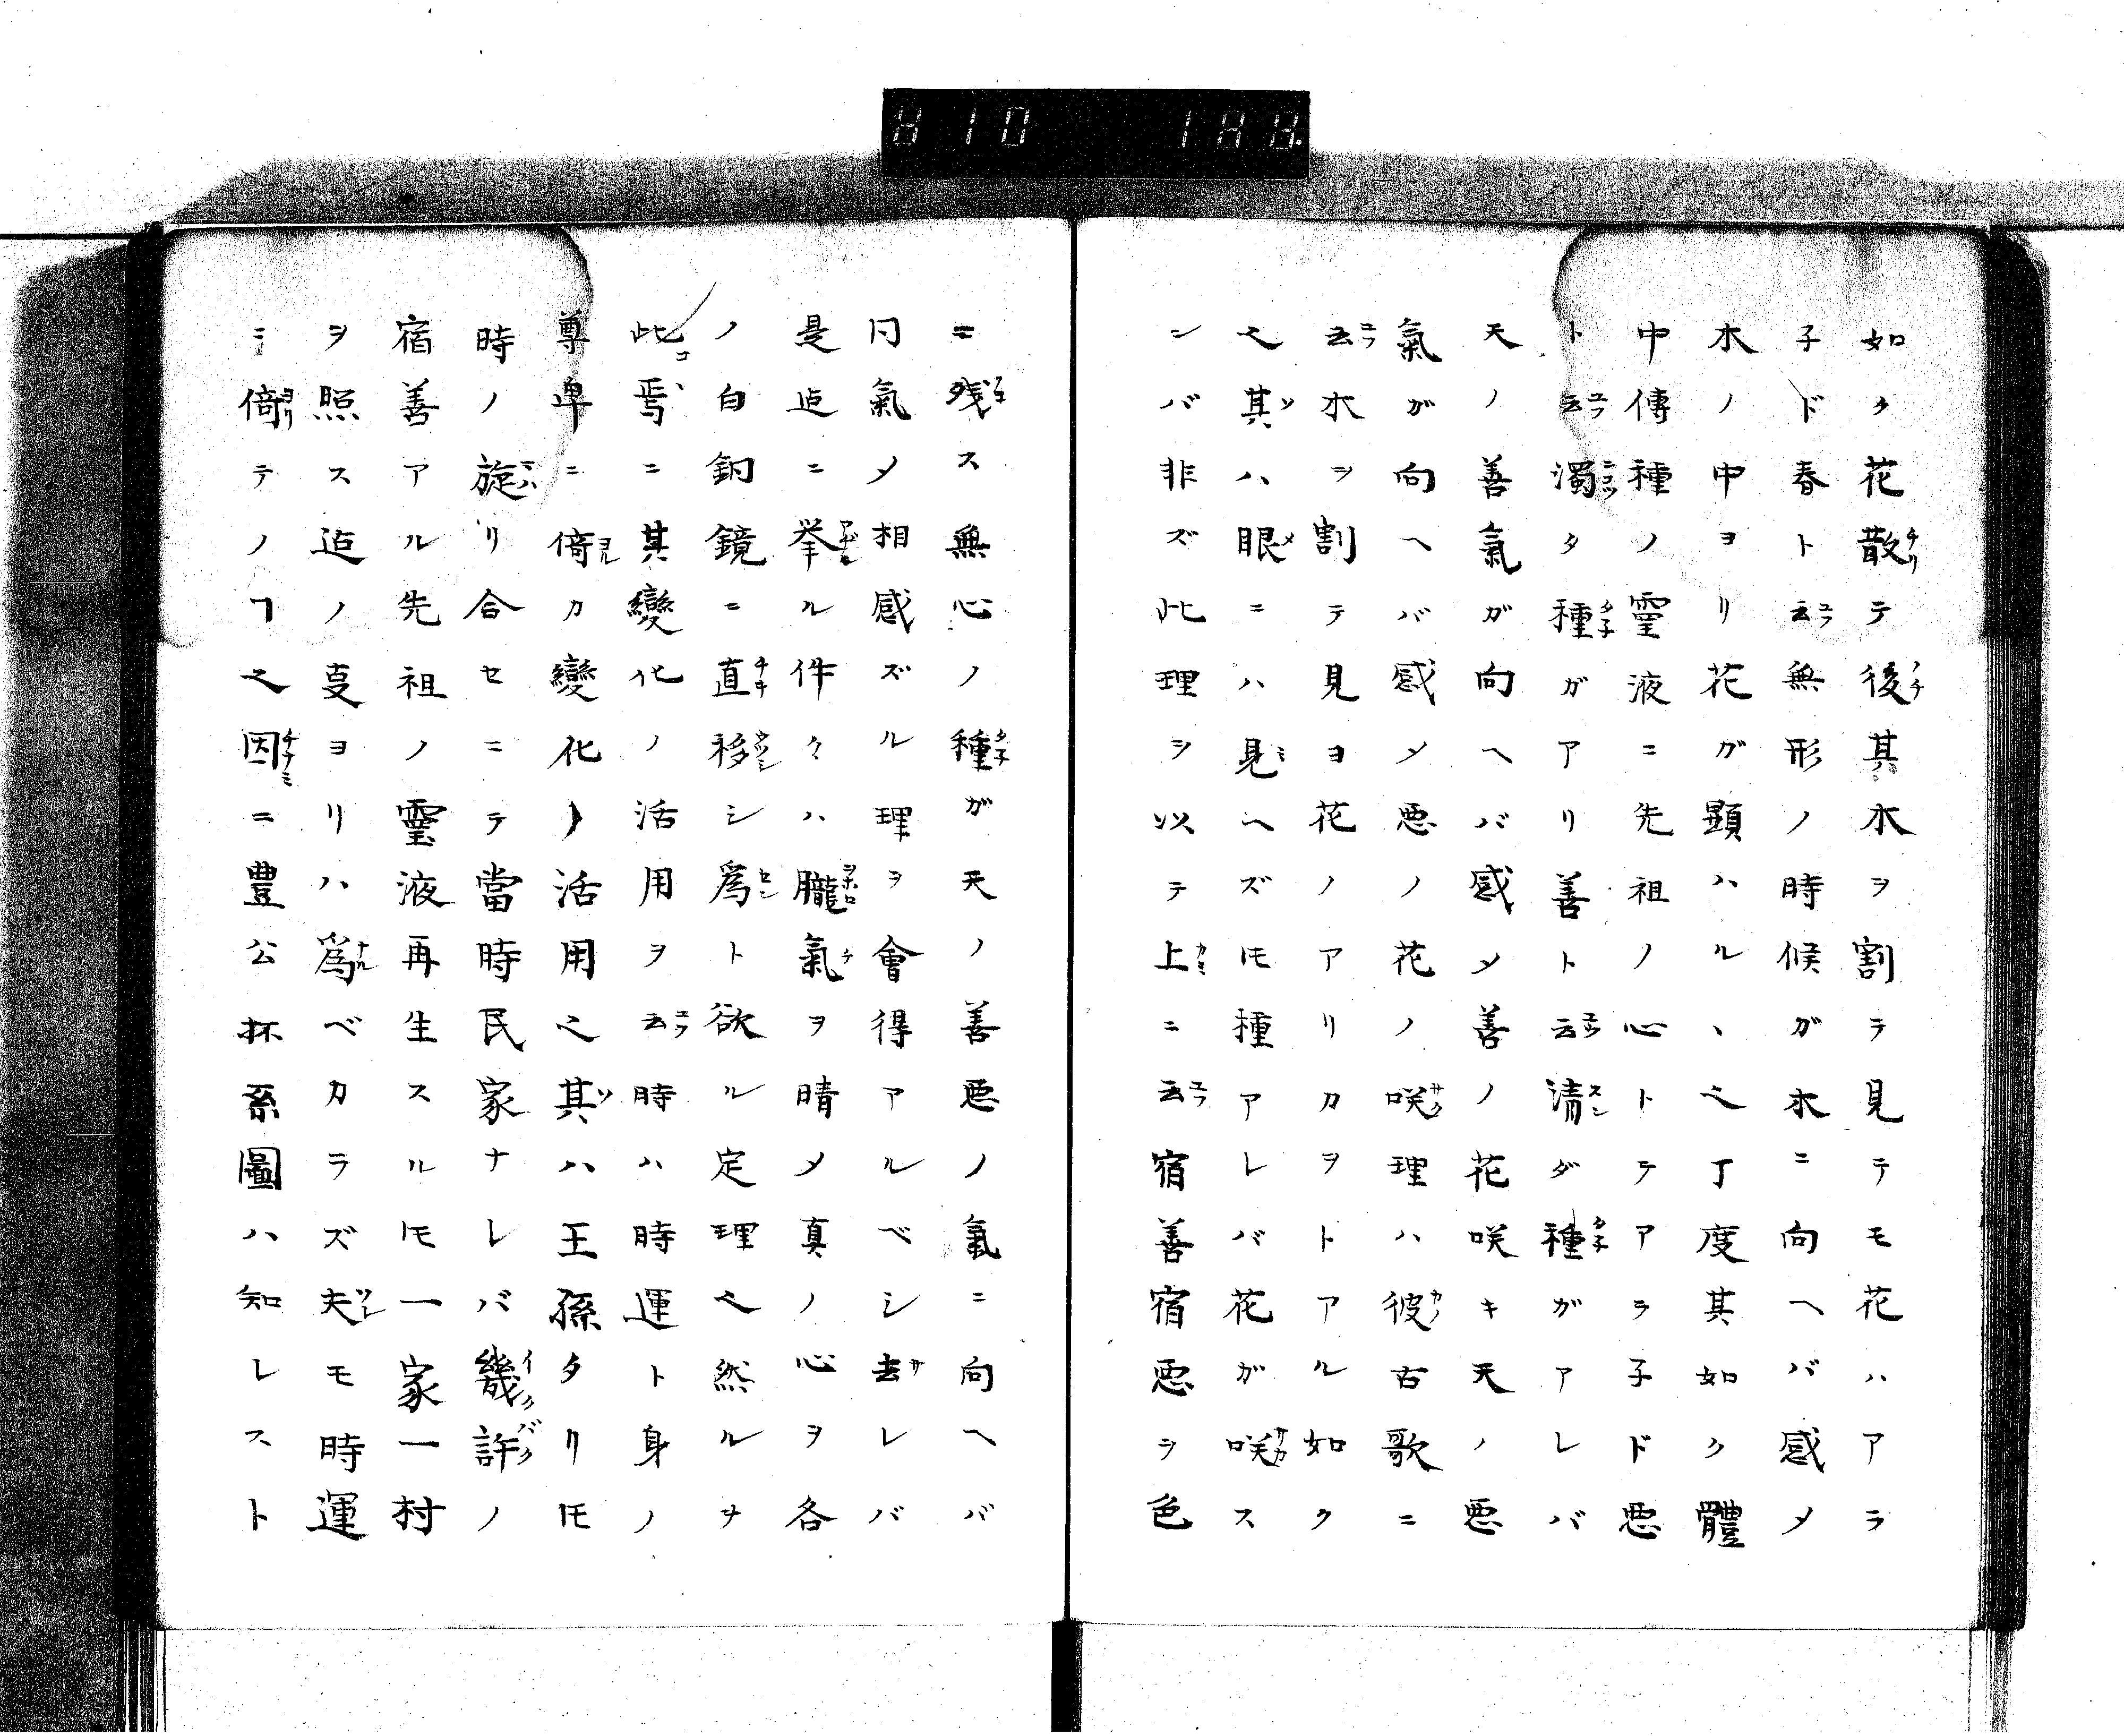 如ク花散テ後其木ヲ割ラ見テモ花ハアラ
子ドド春ト云無形ノ時候ガ木ニ向ヘバ感〆
木ノ中ヨリ花ガ顕ハル丶也丁度其如ク體
中傳種ノ霊液ニ先祖ノ心トテアラ子ド悪
ト云濁タ種ガアリ善ト云清ダ種ガアレバ
天ノ善氣ガ向ヘバ感〆善ノ花咲キ天ノ悪
氣ガ向ヘバ感〆悪ノ花ノ咲理ハ彼古歌ニ
云木ヲ割テ見ヨ花ノアリカヲトアル如ク
也其ハ眼ニハ見ヘズ𪜈種アレバ花ガ咲ス
ンバ非ズ此理ヲ以テ上ニ云宿善宿悪ヲ色
ニ残ス無心ノ種ガ天ノ善悪ノ氣ニ向ヘバ
同氣〆相感ズル理ヲ會得アルベシ去レバ
是迠ニ挙ル件々ハ朧氣ヲ晴〆真ノ心ヲ各
ノ白銅鏡ニ直移シ爲ト欲ル定理也然ルヲ
此焉ニ其變化ノ活用ヲ云時ハ時運ト身ノ
尊卑ニ倚カ變化ノ活用也其ハ王孫タリ𪜈
時ノ旋リ合セニテ當時民家ナレバ幾許ノ
宿善アル先祖ノ霊液再生スル𪜈一家一村
ヲ照ス迠ノ叓ヨリハ爲ベカラズ夫モ時運
ニ倚テノヿ也因ニ豊公抔系圖ハ知レスト